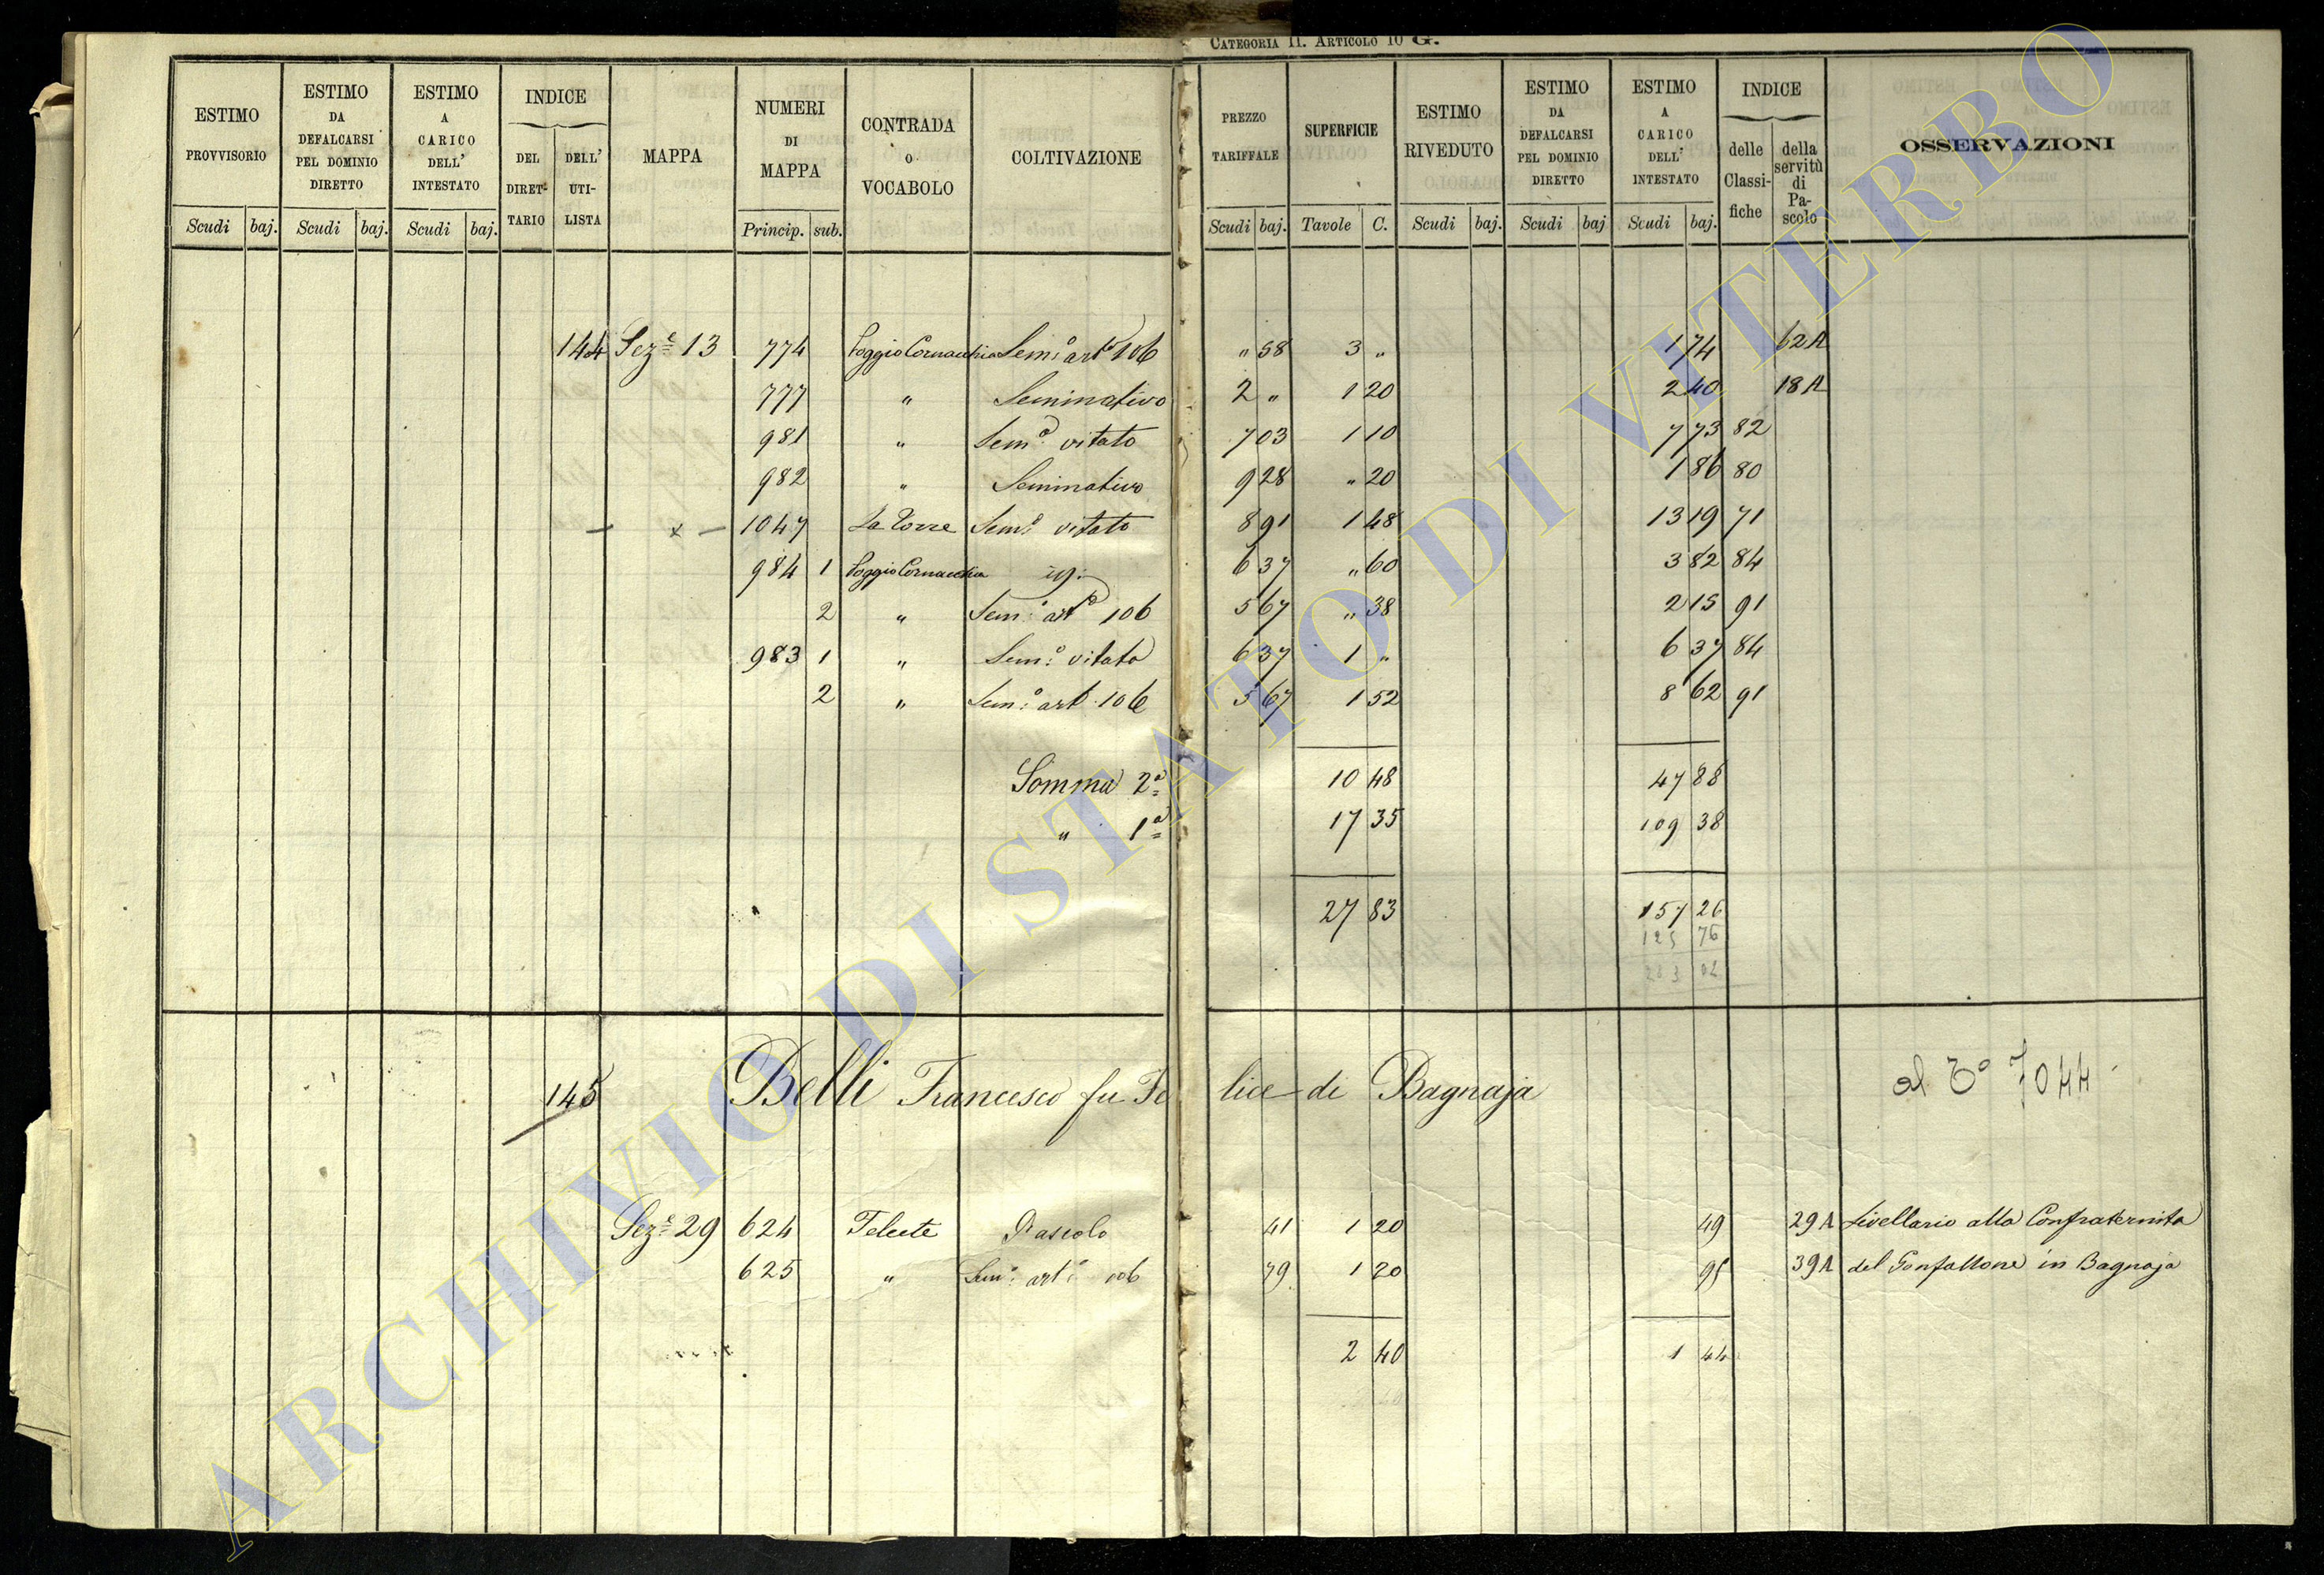 CATEGORIA II. ARTICOLO 10 G.
ESTIMO PROVVISORIO Scudi baj. ESTIMO DA DEFALCARSI PEL DOMINIO DIRETTO Scudi baj. ESTIMO A CARICO DELL' INTESTATO Scudi baj. INDICE DEL DIRETTARIO DELL' UTILISTA MAPPA NUMERI DI MAPPA Princip. sub. CONTRADA O VOCABOLO COLTIVAZIONE PREZZO TARIFFALE Scudi baj. SUPERFICIE Tavole C. ESTIMO RIVEDUTO Scudi baj. ESTIMO DA DEFALCARSI PEL DOMINIO DIRETTO Scudi baj ESTIMO A CARICO DELL' INTESTATO Scudi baj. INDICE delle Classifiche della servitù di Pascolo OSSERVAZIONI
144 Sez.e 13 774 Poggio Cornacchia Sem.o art.o 106 " 58 3 " 1 74 62A
777 " Seminativo 2 " 1 20 2 40 18A
981 " Sem.o vitato 7 03 1 10 7 73 82
982 " Seminativo 9 28 " 20 1 86 80
— x — 1047 La Torre Sem.o vitato 8 91 1 48 13 19 71
984 1 Poggio Cornacchia ig. 6 37 " 60 3 82 84
2 " Sem.o art.o 106 5 67 " 38 2 15 91
983 1 " Sem.o vitato 6 37 1 " 6 37 84
2 " Sem.o art. 106 5 67 1 52 8 62 91
Somma 2a 10 48 47 88
" 1a 17 35 109 38
27 83 157 26
125 76
283 02
145 Belli Francesco fu Felice di Bagnaja al To 7044
Sez.e 29 624 Felcete Pascolo 41 1 20 49 29A Livellario alla Confraternita
625 " Sem.o art.o 106 79 1 20 95 39A del Gonfallone in Bagnaja
2 40 1 44
ARCHIVIO DI STATO DI VITERBO